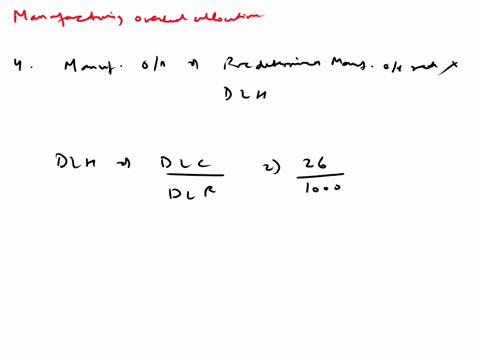 Manufacturing overhead allocation
4. Manuf. O/H → Predetermined Manf. O/H rate ×
DLH
DLH → DLC / DLR → 26 / 1000